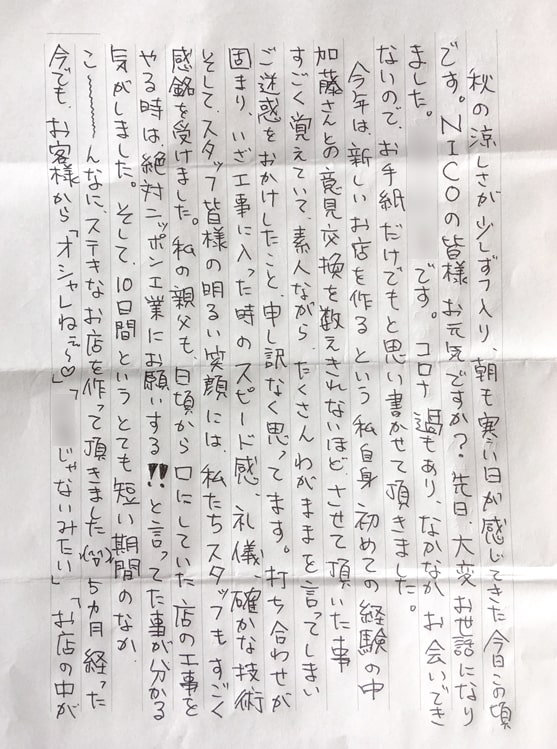 秋の涼しさが少しずつ入り、朝も寒い日が感じてきた今日この頃
です。NICOの皆様 お元気ですか？先日、大変お世話になり
ました。 です。コロナ過もあり、なかなか お会いでき
ないので、お手紙だけでもと思い書かせて頂きました。
今年は、新しいお店を作る という 私自身 初めての経験の中
加藤さんとの意見交換を数えきれないほど させて頂いた事
すごく覚えていて、素人ながら、たくさんわがままを言ってしまい
ご迷惑をおかけしたこと、申し訳なく思ってます。打ち合わせが
固まり、いざ工事に入った時のスピード感、礼儀、確かな技術
そして、スタッフ皆様の明るい笑顔には、私たちスタッフも すごく
感銘を受けました。私の親父も、日頃から 口にしていた 店の工事を
やる時は、絶対ニッポン工業にお願いする!! と言ってた事が分かる
気がしました。そして、10日間 という とても 短い 期間の なか
こ〜〜〜んなに、ステキなお店を作って頂きました(^^) 5ヵ月 経った
今でも、お客様から「オシャレねぇ〜♡」「 じゃないみたい」「お店の中が